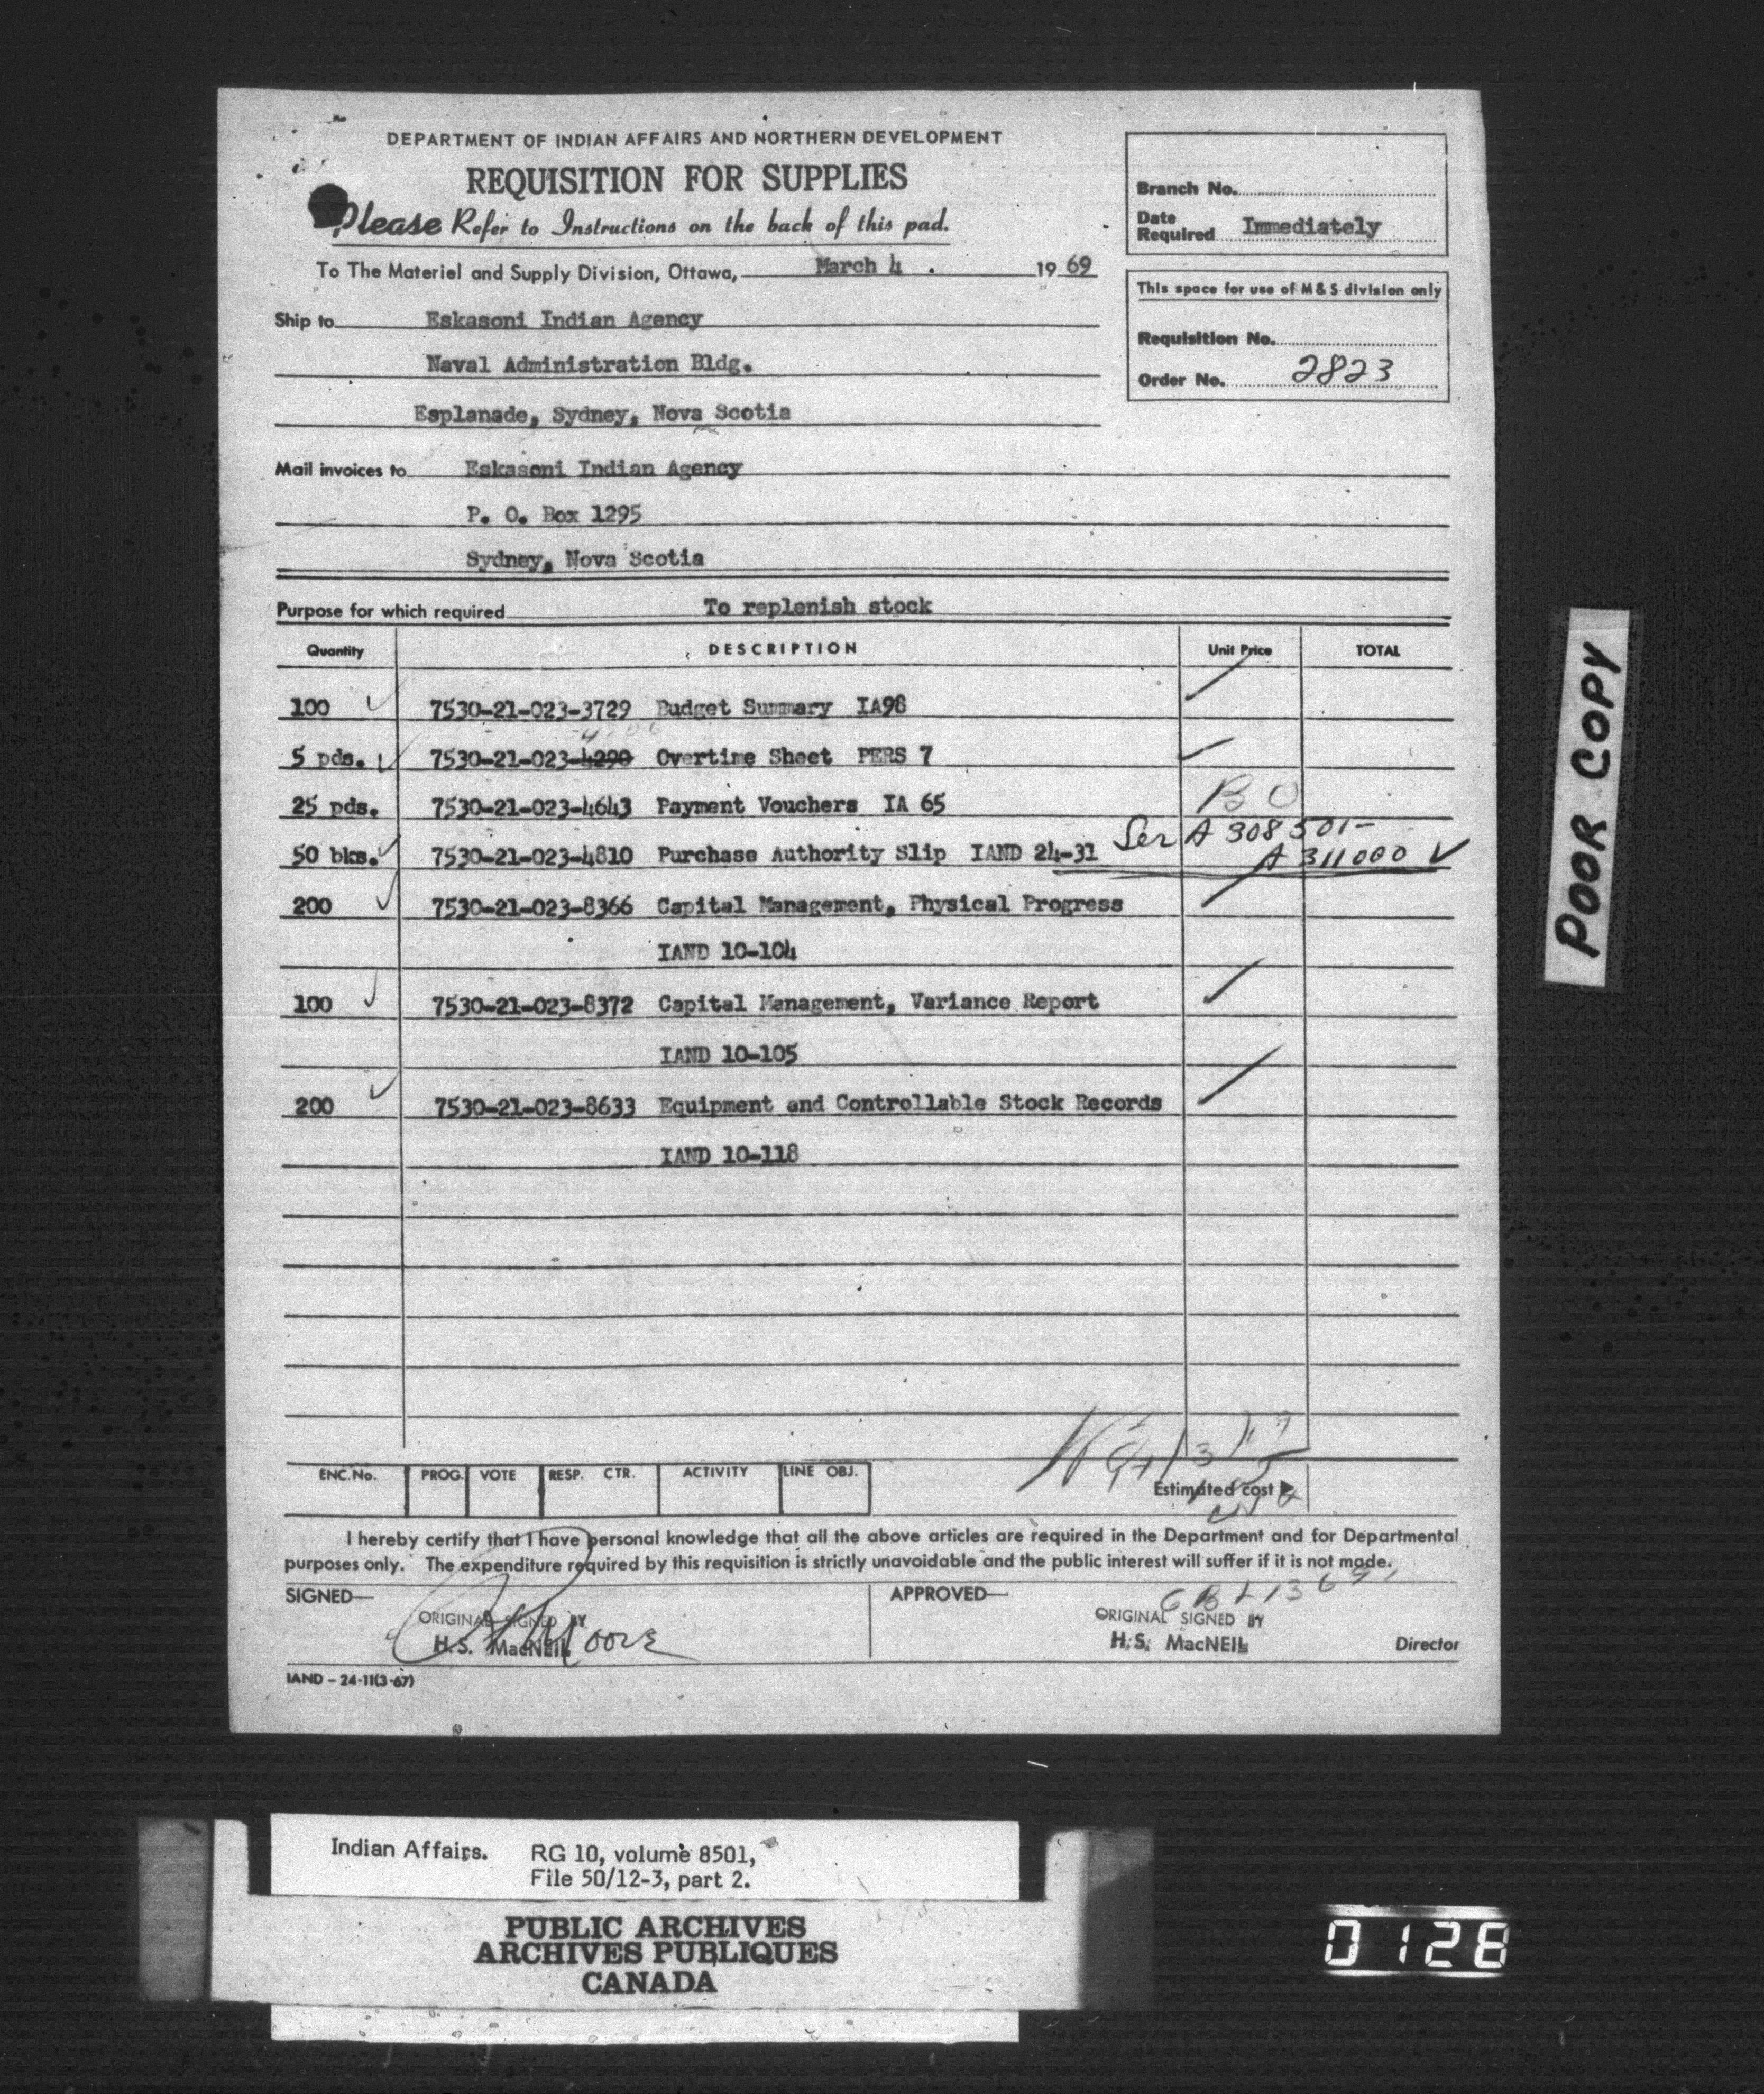 DEPARTMENT OF INDIAN AFFAIRS AND NORTHERN DEVELOPMENT
REQUISITION FOR SUPPLIES
Please Refer to Instructions on the back of this pad.
Branch No.
Date Required Immediately
To The Materiel and Supply Division, Ottawa, March 4 . 19 69
This space for use of M & S division only
Requisition No.
Order No. 2823
Ship to Eskasoni Indian Agency
Naval Administration Bldg.
Esplanade, Sydney, Nova Scotia
Mail invoices to Eskasoni Indian Agency
P. O. Box 1295
Sydney, Nova Scotia
Purpose for which required To replenish stock
Quantity DESCRIPTION Unit Price TOTAL
100 ✓ 7530-21-023-3729 Budget Summary IA98 ✓
5 pds. ✓ 7530-21-023-4290 Overtime Sheet PERS 7 ✓
25 pds. 7530-21-023-4643 Payment Vouchers IA 65 B O
Ser A 308501-
50 bks. ✓ 7530-21-023-4810 Purchase Authority Slip IAND 24-31 A 311000 ✓
200 ✓ 7530-21-023-8366 Capital Management, Physical Progress ✓
IAND 10-104
100 ✓ 7530-21-023-8372 Capital Management, Variance Report ✓
IAND 10-105
200 ✓ 7530-21-023-8633 Equipment and Controllable Stock Records ✓
IAND 10-118
ENC. No. PROG. VOTE RESP. CTR. ACTIVITY LINE OBJ.
Estimated cost ▶
I hereby certify that I have personal knowledge that all the above articles are required in the Department and for Departmental
purposes only. The expenditure required by this requisition is strictly unavoidable and the public interest will suffer if it is not made.
SIGNED—
ORIGINAL SIGNED BY
H.S. MacNEIL
Moore
APPROVED—
ORIGINAL SIGNED BY
H.S. MacNEIL Director
IAND – 24-11(3-67)
POOR COPY
Indian Affairs. RG 10, volume 8501,
File 50/12-3, part 2.
PUBLIC ARCHIVES
ARCHIVES PUBLIQUES
CANADA
0128